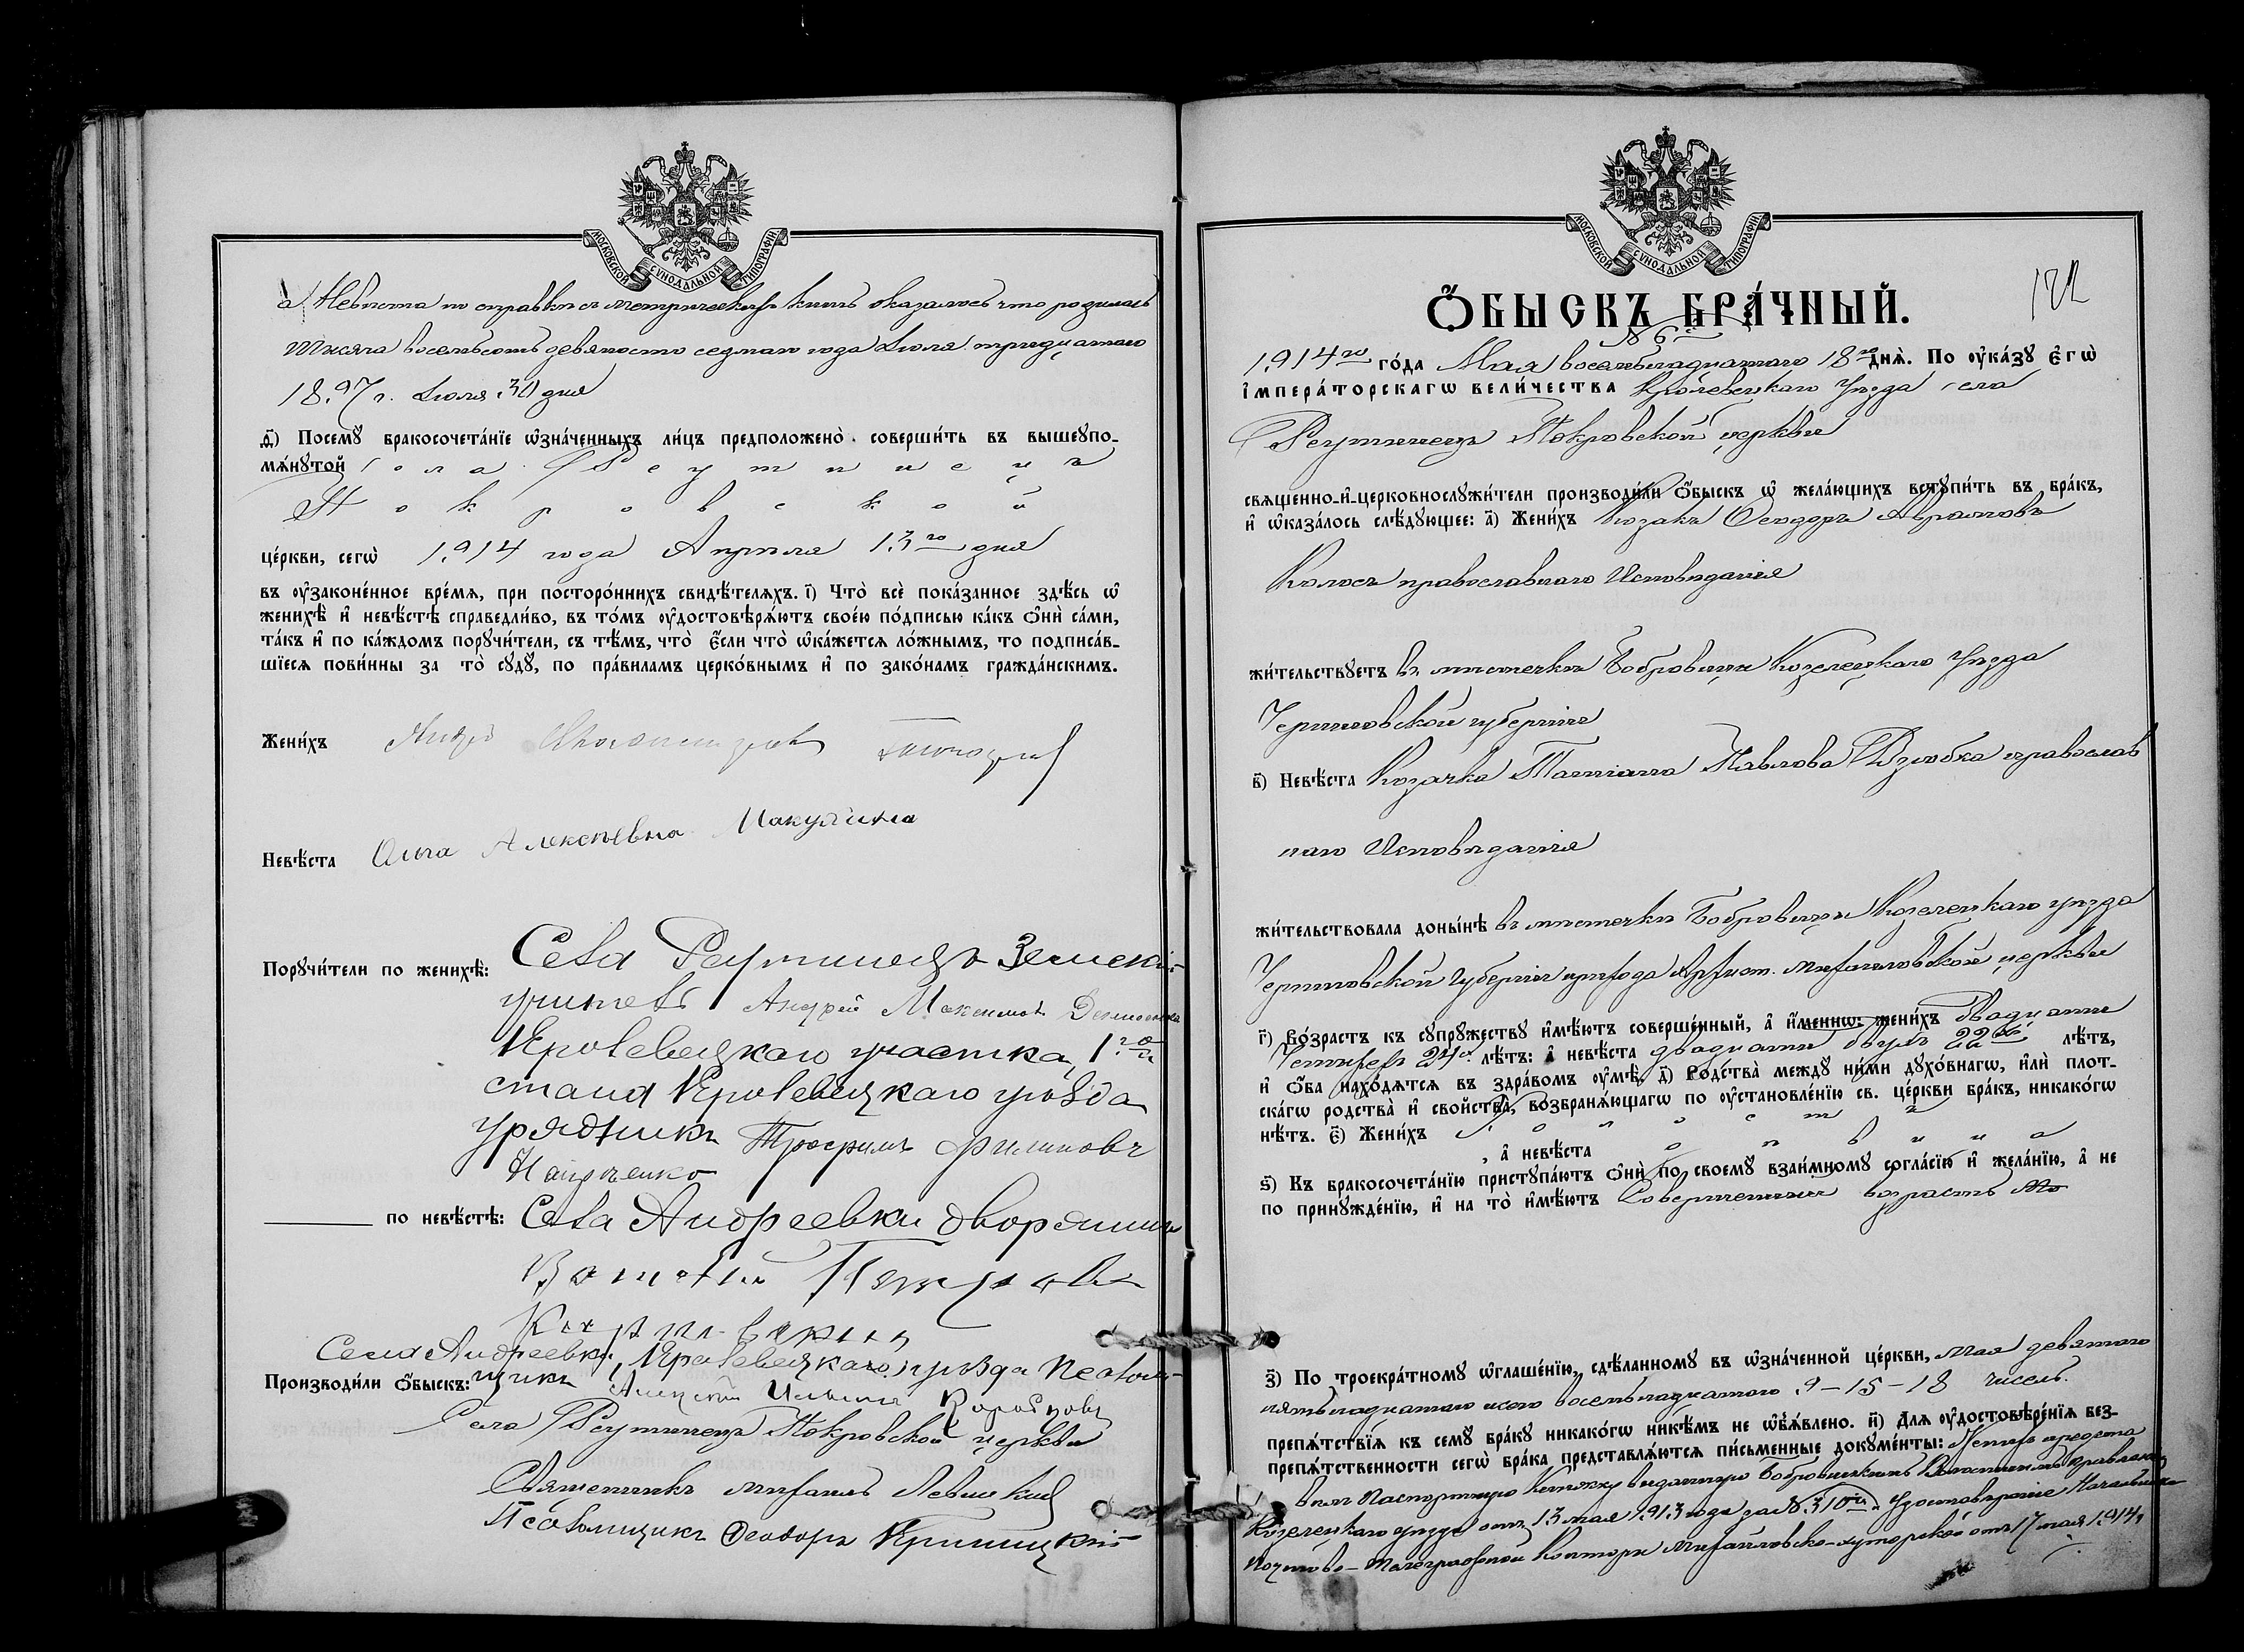 МОСКОВСКОЙ СѴНОДАЛЬНОЙ ТИПОГРАФІИ
а Невѣста по справкѣ съ метрическихъ книгъ оказалось что родилась
тысяча восемьсотъ девяносто седмаго года Іюля тридцатаго
1897 г. Іюля 30 дня
д҃і) Посемꙋ̀ бракосочета́нїе ѡ҆зна́ченныхъ ли́цъ предположено̀ соверши́ть въ вышеꙋпо-
мѧ́нꙋтой села Реутинецъ
Покровской
це́ркви, сегѡ̀ 1914 года Апрѣля 13го дня
въ ᲂу҆законе́нное вре́мѧ, при посторо́ннихъ свидѣ́телѧхъ. і҃) Что̀ всѐ пока́занное здѣ́сь ѡ҆
женихѣ̀ и҆ невѣ́стѣ справедли́во, въ то́мъ ᲂу҆достовѣрѧ́ютъ свое́ю по́дписью ка́къ ѻ҆нѝ са́ми,
та́къ и҆ по ка́ждомъ порꙋчи́тели, съ тѣ́мъ, что̀ є҆́сли что̀ ѡ҆ка́жетсѧ ло́жнымъ, то подписа́в-
шїесѧ пови́нны за то̀ сꙋдꙋ̀, по пра́виламъ церко́внымъ и҆ по зако́намъ гражда́нскимъ.
Жени́хъ Андрей
Невѣ́ста Ольга Алексѣевна Макушина
Порꙋчи́тели по женихѣ̀: Села Реутинецъ Земскій
учитель Андрей Максимовъ
Кролевецкаго участка, 1го
стана Кролевецкаго уѣзда
урядникъ Трофимъ Филиповъ
по невѣ́стѣ: Села Андреевки дворянинъ
Василій Петровъ
Села Андреевки, Кролевецкаго уѣзда Псалом-
Производи́ли ѻ҆́быскъ: щикъ Алексѣй Коробковъ
Села Реутинецъ Покровской церкви
Священникъ Михаилъ Левицкій
Псаломщикъ Феодоръ Криницкій
МОСКОВСКОЙ СѴНОДАЛЬНОЙ ТИПОГРАФІИ
122
Ѻ҆́БЫСКЪ БРА́ЧНЫЙ.
№ 6й
1914го го́да Мая восемьнадцатаго 18го днѧ̀. По ᲂу҆ка́зꙋ є҆гѡ̀
і҆мпера́торскагѡ вели́чества Кролевецкаго Уѣзда села
Реутинецъ Покровской церкви
свѧщенно-и҆-церковнослꙋжи́тели производи́ли ѻ҆́быскъ ѡ҆ жела́ющихъ встꙋпи́ть въ бра́къ,
и҆ ѡ҆каза́лось слѣ́дꙋющее: а҃) Жени́хъ Козакъ Ѳеодоръ Аврамовъ
Колосъ православнаго Исповѣданія
жи́тельствꙋетъ въ мѣстечкѣ Бобровицѣ Козелецкаго Уѣзда
Черниговской губерніи
в҃) Невѣ́ста Козачка Татіана Павлова православ
наго Исповѣданія
жи́тельствовала доны́нѣ въ мѣстечкѣ Бобровицѣ Козелецкаго уѣзда
Черниговской губерніи прихода Михаиловской церкви
г҃) Во́зрастъ къ сꙋпрꙋ́жествꙋ и҆мѣ́ютъ соверше́нный, а҆ и҆́меннѡ: жени́хъ двадцати
четырехъ 24хъ лѣ́тъ: а҆ невѣ́ста двадцати двухъ 22хъ лѣ́тъ,
и҆ ѻ҆́ба нахо́дѧтсѧ въ здра́вомъ ᲂу҆мѣ̀. д҃) Ро́дства̀ междꙋ̀ ни́ми дꙋхо́внагѡ, и҆лѝ плот-
ска́гѡ родства̀ и҆ свойства̀, возбранѧ́ющагѡ по ᲂу҆становле́нїю св. це́ркви бра́къ, никако́гѡ
нѣ́тъ. є҃) Жени́хъ холостъ
, а҆ невѣ́ста дѣвица
ѕ҃) Къ бракосочета́нїю пристꙋпа́ютъ ѻ҆нѝ по своемꙋ̀ взаи́мномꙋ согла́сїю и҆ жела́нїю, а҆ не
по принꙋжде́нїю, и҆ на то̀ и҆мѣ́ютъ Совершенный возрастъ
з҃) По троекра́тномꙋ ѡ҆глаше́нїю, сдѣ́ланномꙋ въ ѡ҆зна́ченной це́ркви, Мая девятаго
пятьнадцатаго и восемьнадцатаго 9–15–18 чиселъ.
препѧ́тствїѧ къ семꙋ̀ бра́кꙋ никако́гѡ никѣ́мъ не ѡ҆б̾ѧ́влено. и҃) Длѧ ᲂу҆достовѣре́нїѧ без-
препѧ́тственности сегѡ̀ бра́ка представлѧ́ютсѧ пи́сьменные докꙋме́нты: Женихъ предста
вилъ Паспортную Книжку выданную Бобровицкимъ Волостнымъ правленіемъ
Козелецкаго уѣзда отъ 13 мая 1913 года за № 310й. Удостовѣреніе Начальника
Почтово-Телеграфной Конторы Михайловско-хуторской отъ 17 мая 1914